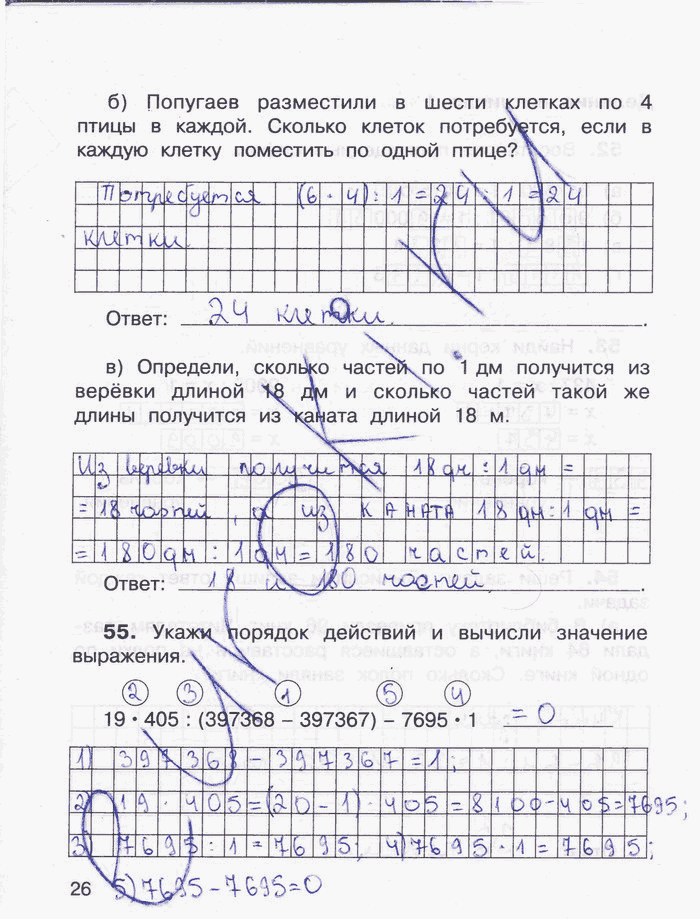 б) Попугаев разместили в шести клетках по 4
птицы в каждой. Сколько клеток потребуется, если в
каждую клетку поместить по одной птице?
Потребуется (6 · 4) : 1 = 24 : 1 = 24
клетки.
Ответ: 24 клетки.
в) Определи, сколько частей по 1 дм получится из
верёвки длиной 18 дм и сколько частей такой же
длины получится из каната длиной 18 м.
Из верёвки получится 18 дм : 1 дм =
= 18 частей, а из каната 18 дм : 1 дм =
= 180 дм : 1 дм = 180 частей.
Ответ: 18 и 180 частей.
55. Укажи порядок действий и вычисли значение
выражения.
2 3 1 5 4
19 · 405 : (397368 – 397367) – 7695 · 1 = 0
1) 397368 – 397367 = 1;
2) 19 · 405 = (20 – 1) · 405 = 8100 – 405 = 7695;
3) 7695 : 1 = 7695; 4) 7695 · 1 = 7695;
26 5) 7695 – 7695 = 0